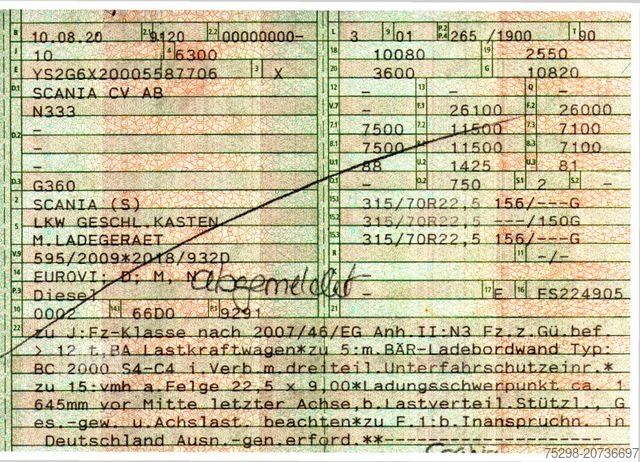 B 10.08.20 2.1 9120 2.2 00000000- L 3 9 01 P.2 P.4 265 /1900 T 90
J 10 4 6300 18 10080 19 2550
E YS2G6X20005587706 3 X 20 3600 G 10820
D.1 SCANIA CV AB 12 - 13 - Q -
N333 V.7 - F.1 26100 F.2 26000
D.2 - 7.1 7500 7.2 11500 7.3 7100
- 8.1 7500 8.2 11500 8.3 7100
- U.1 88 U.2 1425 U.3 81
D.3 G360 O.1 - O.2 750 S.1 2 S.2 -
2 SCANIA (S) 15.1 315/70R22,5 156/---G
5 LKW GESCHL.KASTEN 15.2 315/70R22,5 ---/150G
M.LADEGERAET 15.3 315/70R22,5 156/---G
V.9 595/2009*2018/932D R 11 -/-
14 EUROVI; D; M, N abgemeldet
P.3 Diesel - 17 E 16 FS224905
10 0002 14.1 66D0 P.1 9291
22 zu J:Fz-Klasse nach 2007/46/EG Anh II:N3 Fz.z.Gü.bef.
> 12 t,BA Lastkraftwagen*zu 5:m.BÄR-Ladebordwand Typ:
BC 2000 S4-C4 i.Verb.m.dreiteil.Unterfahrschutzeinr.*
zu 15:vmh a.Felge 22,5 x 9,00*Ladungsschwerpunkt ca. 1
645mm vor Mitte letzter Achse,b.Lastverteil.Stützl., G
es.-gew. u.Achslast. beachten*zu F.1:b.Inanspruchn. in
Deutschland Ausn.-gen.erford.**-------------------
75298-20736697